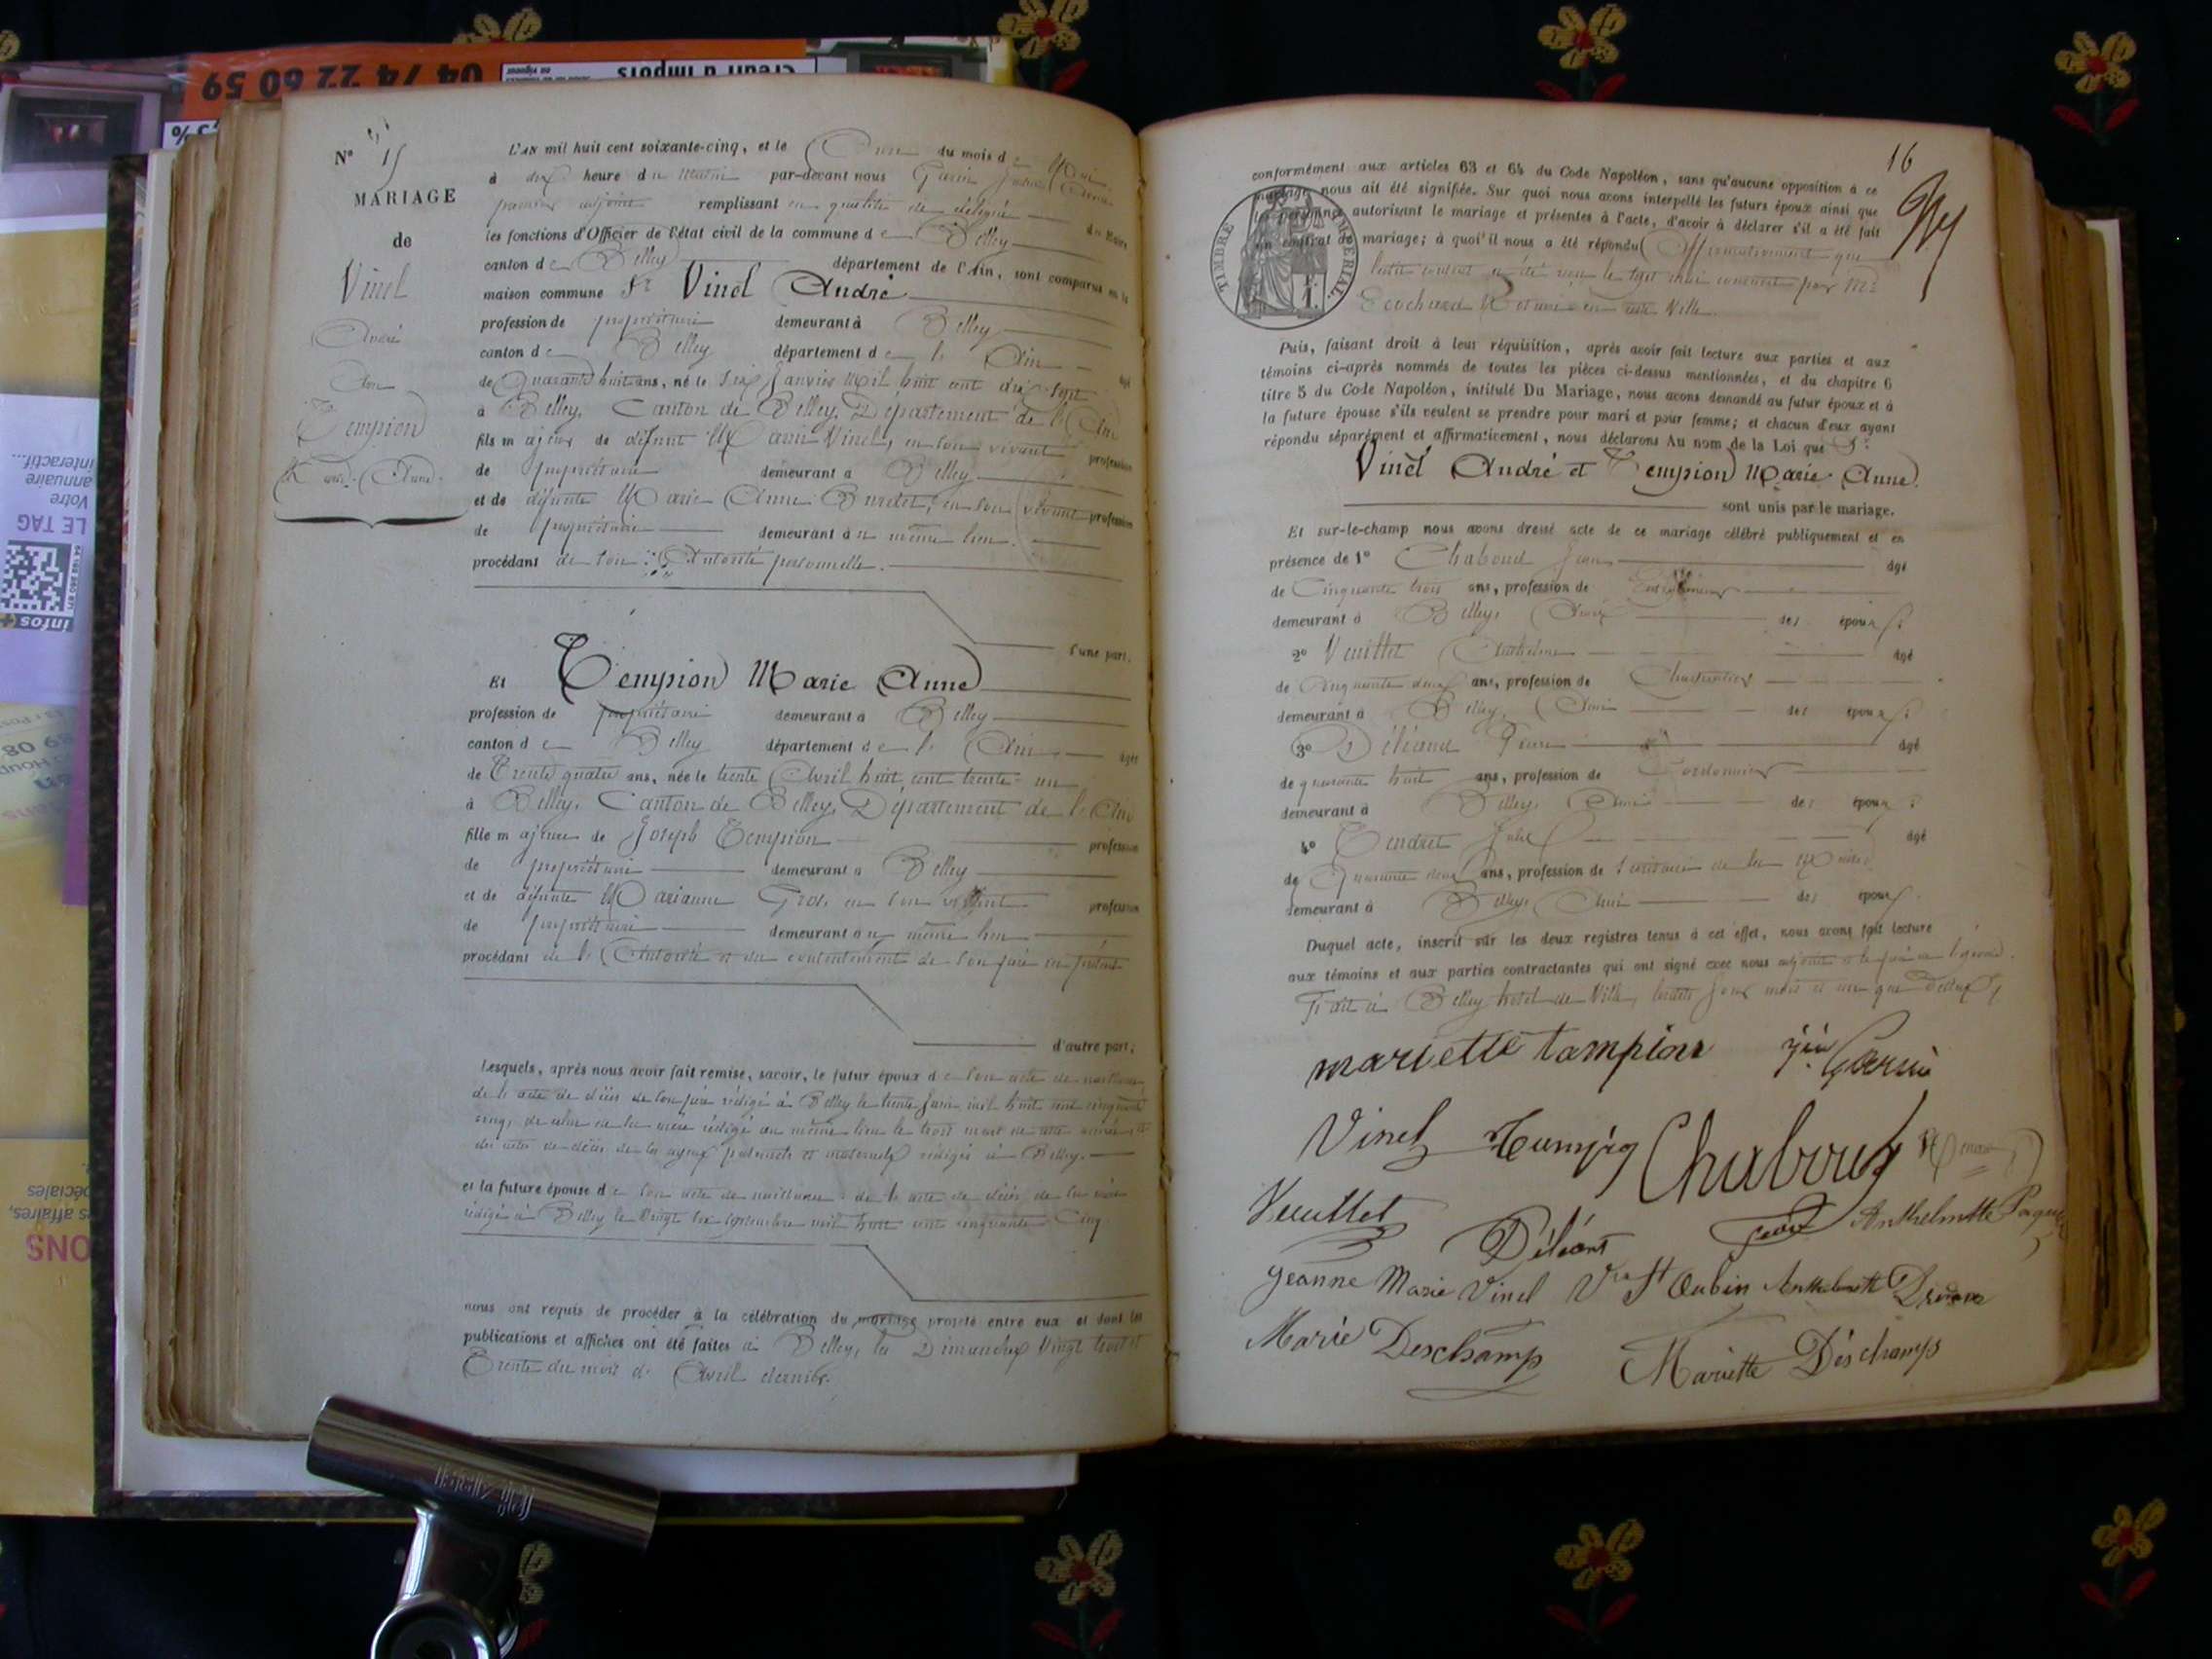 04 74 22 60 59
Crédit d'impôts
N° 15
MARIAGE
de
Vinel
André
Tempion
Marie Anne
L'AN mil huit cent soixante-cinq, et le onze du mois de Mai
à dix heure du matin par-devant nous Garin
premier adjoint remplissant en qualité de délégué
les fonctions d'Officier de l'état civil de la commune de Belley
canton de Belley département de l'Ain, sont comparus en la
maison commune Sr Vinel André
profession de propriétaire demeurant à Belley
canton de Belley département de l'Ain âgé
de Quarante huit ans, né le six Janvier mil huit cent dix sept
à Belley, Canton de Belley, Département de l'Ain
fils majeur de défunt Marin Vinel, en son vivant profession
de propriétaire demeurant à Belley
et de défunte Marie Anne Burdet, en son vivant profession
de propriétaire demeurant au même lieu
procédant de son Autorité personnelle.
d'une part;
Et Tempion Marie Anne
profession de propriétaire demeurant à Belley
canton de Belley département de l'Ain âgée
de Trente quatre ans, née le trente Avril huit cent trente-un
à Belley, Canton de Belley, Département de l'Ain
fille majeure de Joseph Tempion profession
de propriétaire demeurant à Belley
et de défunte Marianne Gros, en son vivant profession
de propriétaire demeurant au même lieu
procédant de l'Autorité et du consentement de son père ici présent
d'autre part;
Lesquels, après nous avoir fait remise, savoir, le futur époux de son acte de naissance
de l'acte de décès de son père rédigé à Belley le trente Juin mil huit cent cinquante
cinq, de celui de la mère rédigé au même lieu le trois mars de cette année et
des actes de décès de ses ayeux paternels et maternels rédigés à Belley.
et la future épouse de son acte de naissance, de l'acte de décès de sa mère
rédigé à Belley le Vingt six septembre mil huit cent cinquante Cinq
nous ont requis de procéder à la célébration du mariage projeté entre eux et dont les
publications et affiches ont été faites à Belley, les Dimanches Vingt trois et
Trente du mois d'Avril dernier.
16
conformément aux articles 63 et 64 du Code Napoléon, sans qu'aucune opposition à ce
mariage nous ait été signifiée. Sur quoi nous avons interpellé les futurs époux ainsi que
les personnes autorisant le mariage et présentes à l'acte, d'avoir à déclarer s'il a été fait
un contrat de mariage; à quoi il nous a été répondu Affirmativement que
ledit contrat a été reçu le sept mai courant par Me
Ecochard Notaire en cette Ville.
TIMBRE IMPÉRIAL
Puis, faisant droit à leur réquisition, après avoir fait lecture aux parties et aux
témoins ci-après nommés de toutes les pièces ci-dessus mentionnées, et du chapitre 6
titre 5 du Code Napoléon, intitulé Du Mariage, nous avons demandé au futur époux et à
la future épouse s'ils veulent se prendre pour mari et pour femme; et chacun d'eux ayant
répondu séparément et affirmativement, nous déclarons Au nom de la Loi que Sr
Vinel André et Tempion Marie Anne
sont unis par le mariage.
Et sur-le-champ nous avons dressé acte de ce mariage célébré publiquement et en
présence de 1° Chaboud Jean âgé
de Cinquante trois ans, profession de
demeurant à Belley, Ain des époux
2° Veuillet Anthelme âgé
de Cinquante deux ans, profession de Charpentier
demeurant à Belley, Ain des époux
3° Déléant Pierre âgé
de quarante huit ans, profession de Cordonnier
demeurant à Belley, Ain des époux
4° Tendret Jules âgé
de Quarante deux ans, profession de secrétaire de la Mairie
demeurant à Belley, Ain des époux
Duquel acte, inscrit sur les deux registres tenus à cet effet, nous avons fait lecture
aux témoins et aux parties contractantes qui ont signé avec nous
Fait à Belley hôtel de Ville, lesdits jour mois et an que dessus
mariette tampion Garin
Vinel Chaboud
Veuillet Déléant Anthelmette
Jeanne Marie Vinel Vve St Oubin Anthelmette
Marie Deschamp Mariette Déschamps